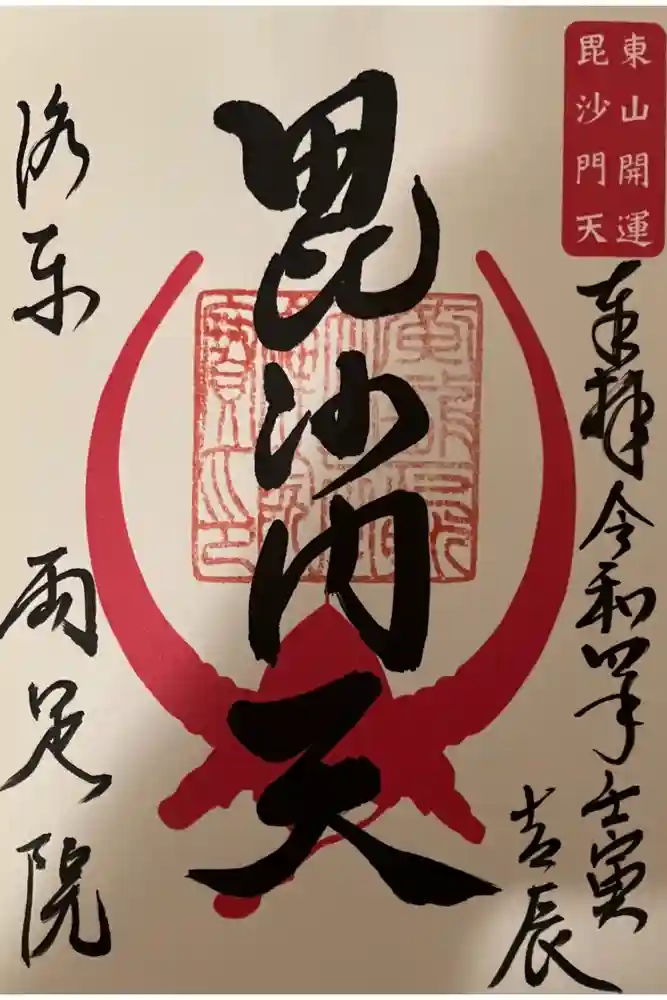 東山開運
毘沙門天
奉拝 令和四年 壬寅
吉辰
毘沙門天
洛東 両足院